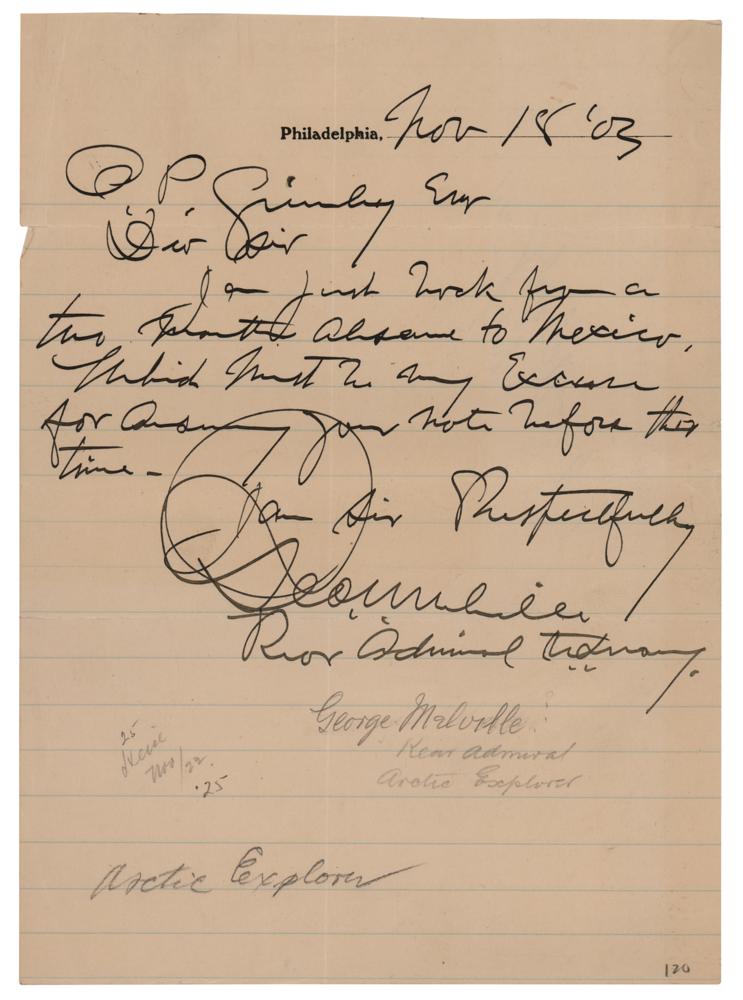 Philadelphia, Nov 18 '03
P Grimley Esq
Dear Sir
I am just back from a
two months absence to Mexico,
Which Must be my Excuse
for answering your note before this
time -
I am Sir Respectfully
Geo W Melville
Rear Admiral U.S. Navy.
George Melville
Rear Admiral
Arctic Explorer
25
Nov/22.
.25
Arctic Explorer
120